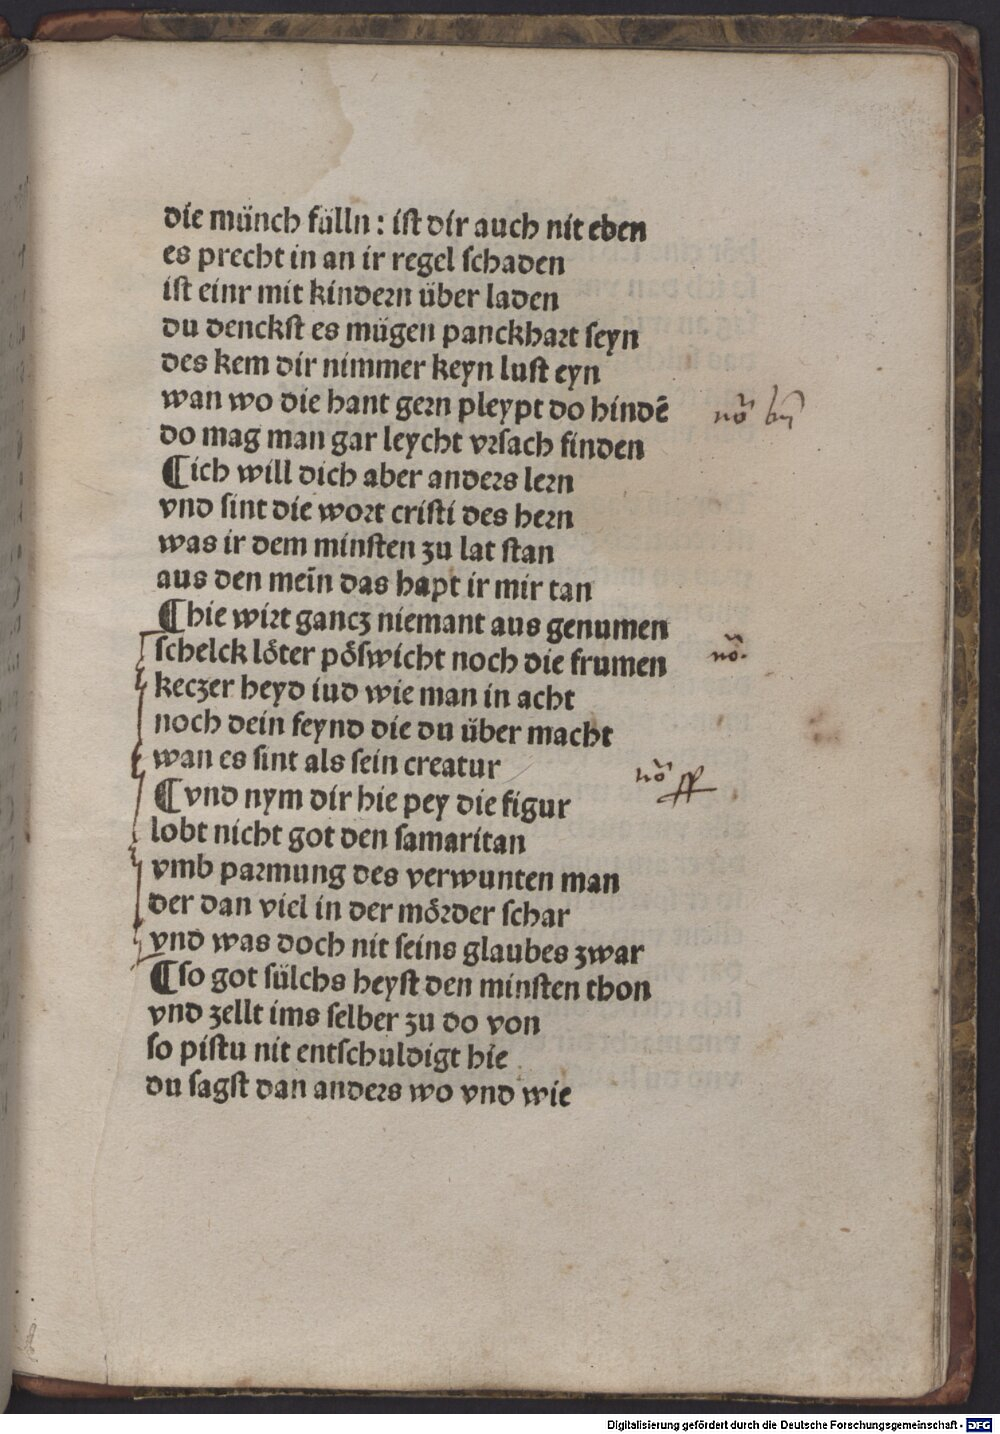 die münch fülln : ist dir auch nit eben
es precht in an ir regel schaden
ist einr mit kindern über laden
du denckst es mügen panckhart seyn
des kem dir nimmer keyn lust eyn
wan wo die hant gern pleypt do hindē
do mag man gar leycht vrsach finden
¶ich will dich aber anders lern
vnd sint die wort cristi des hern
was ir dem minsten zu lat stan
aus den mein̄ das hapt ir mir tan
¶hie wirt gancz niemant aus genumen
schelck löter pöswicht noch die frumen
keczer heyd iud wie man in acht
noch dein feynd die du über macht
wan es sint als sein creatur
¶vnd nym dir hie pey die figur
lobt nicht got den samaritan
vmb parmung des verwunten man
der dan viel in der mörder schar
vnd was doch nit seins glaubes zwar
¶so got sülchs heyst den minsten thon
vnd zellt ims selber zu do von
so pistu nit entschuldigt hie
du sagst dan anders wo vnd wie
nō
nō
nō
Digitalisierung gefördert durch die Deutsche Forschungsgemeinschaft - DFG